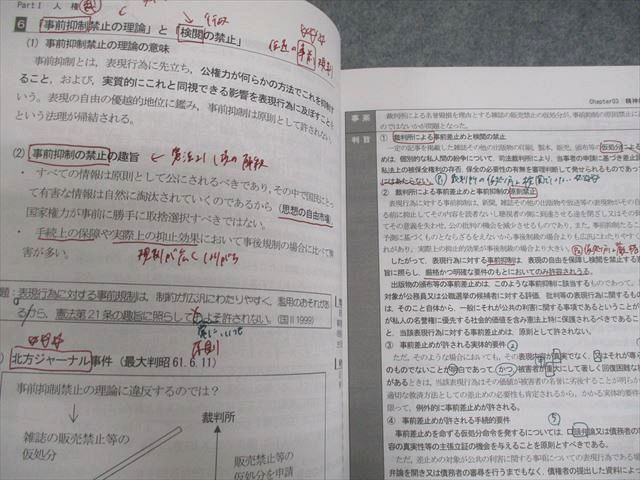 Part I 人 権
6 「事前抑制禁止の理論」と「検閲の禁止」
(1) 事前抑制禁止の理論の意味
事前抑制とは、表現行為に先立ち、公権力が何らかの方法でこれを抑制す
ること、および、実質的にこれと同視できる影響を表現行為に及ぼすことを
いう。表現の自由の優越的地位に鑑み、事前抑制は原則として許されない
という法理が帰結される。
(2) 事前抑制の禁止の趣旨
・ すべての情報は原則として公にされるべきであり、その中で国民にとっ
て有害な情報は自然に淘汰されていくのであるから(思想の自由市場)
国家権力が事前に勝手に取捨選択すべきではない。
・ 手続上の保障や実際上の抑止効果において事後規制の場合に比べて弊
害が多い。
題:表現行為に対する事前規制は、制約が広汎にわたりやすく、濫用のおそれがあ
るから、憲法第21条の趣旨に照らして
許されない。(国Ⅱ1999)
原則
北方ジャーナル事件(最大判昭61.6.11)
事前抑制禁止の理論に違反するのでは?
裁判所
雑誌の販売禁止等の
仮処分
販売禁止等の
仮処分を申請
Chapter03 精神
事 案
裁判所による名誉毀損を理由とする雑誌の販売禁止の仮処分が、事前抑制の原則禁止に
のではないかが問題となった。
判 旨
① 裁判所による事前差止めと検閲の禁止
一定の記事を掲載した雑誌その他の出版物の印刷、製本、販売、頒布等の仮処分に
めは、個別的な私人間の紛争について、司法裁判所により、当事者の申請に基づき差止
私法上の被保全権利の存否、保全の必要性の有無を審理判断して発せられるものであっ
にはあたらない。
② 裁判所による事前差止めと事前抑制の原則禁止
表現行為に対する事前抑制は、新聞、雑誌その他の出版物や放送等の表現物がその
る前に抑止してその内容を読者ない し聴視者の側に到達させる途を閉ざし又はその
てその意義を失わせ、公の批判の機会を減少させるものであり、また、事前抑制たる
予測に基づくものとならざるをえないこと等から事後制裁の場合よりも広汎にわたりやすく
れがあり、実際上の抑止的効果が事後制裁の場合より大きい
したがって、表現行為に対する事前抑制は、表現の自由を保障し検閲を禁止する
旨に照らし、厳格かつ明確な要件のもとにおいてのみ許容されうる。
出版物の頒布等の事前差止めは、このような事前抑制に該当するものであって、
対象が公務員又は公職選挙の候補者に対する評価、批判等の表現行為に関するもの
は、そのこと自体から、一般にそれが公共の利害に関する事項であるということが
が私人の名誉権に優先する社会的価値を含み憲法上特に保護されるべきであること
と、当該表現行為に対する事前差止めは、原則として許されない。
③ 事前差止めが許される実体的要件
ただ、そのような場合においても、その表現内容が真実でなく、又はそれが専ら
のものでないことが明白であって、かつ、被害者が重大にして著しく回復困難な
があるときは、当該表現行為はその価値が被害者の名誉に劣後することが明らか
適切な救済方法としての差止めの必要性も肯定されるから、かかる実体的要件を
限って、例外的に事前差止めが許される。
④ 事前差止めが許される手続的要件
事前差止めを命ずる仮処分命令を発するについては、口頭弁論又は債務者の
の真実性等の主張立証の機会を与えることを原則とすべきである。
ただ、差止めの対象が公共の利害に関する事項についての表現行為である場
弁論を開き又は債務者の審尋を行うまでもなく、債権者の提出した資料によっ